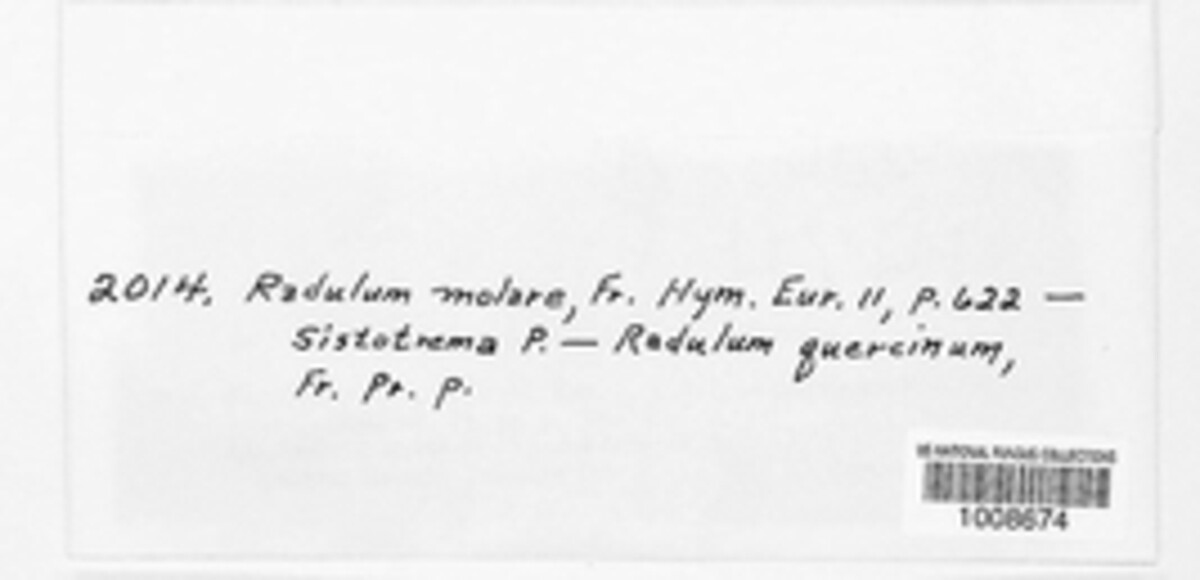 2014. Radulum molare, Fr. Hym. Eur. 11, p. 622 —
Sistotrema P. — Radulum quercinum,
Fr. Pr. p.
US NATIONAL FUNGUS COLLECTIONS
1008674